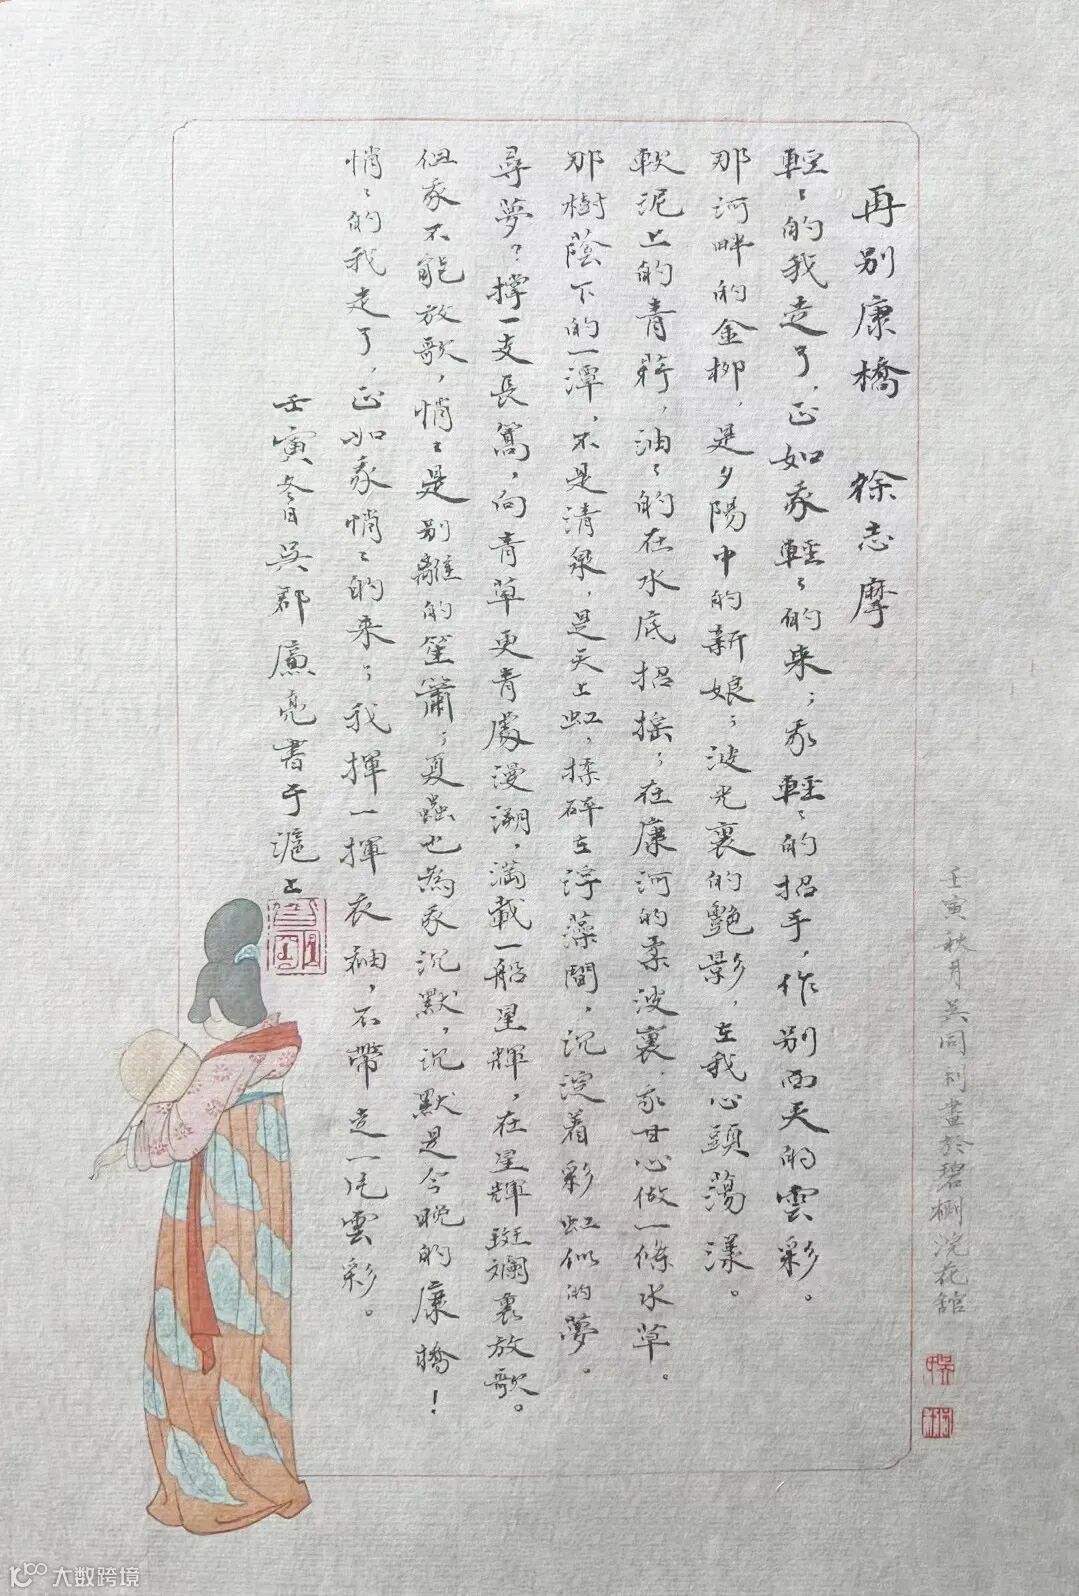 再别康橋 徐志摩
輕〻的我走了，正如我輕〻的来；我輕〻的招手，作别西天的雲彩。
那河畔的金柳，是夕陽中的新娘；波光裏的艷影，在我心頭蕩漾。
軟泥上的青荇，油〻的在水底招摇；在康河的柔波裏，我甘心做一條水草。
那樹蔭下的一潭，不是清泉，是天上虹，揉碎在浮藻間，沉淀着彩虹似的夢。
尋夢？撑一支長篙，向青草更青處漫溯，満載一船星輝，在星輝斑斕裏放歌。
但我不能放歌，悄〻是别離的笙簫；夏蟲也為我沉默，沉默是今晚的康橋！
悄〻的我走了，正如我悄〻的来；我揮一揮衣袖，不带走一片雲彩。
壬寅冬日吴郡廉亮書于滬上
壬寅秋月吴同利畫於碧榭浣花館
大数跨境